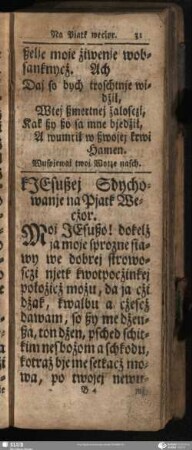 Na Pjatk weczor. 31
ßelle moje žiwenje wob-
sanknycž. Ach
Daj so bych troschtnje wi-
džil,
Wtej ßmertnej žalosczi,
Kak ßy ßo sa mne bjedžil,
A wumril w ßwojej krwi
Hamen.
Wußpiewai twoj Worze nasch.
JEsußej Sdycho-
wanje na Pjatk We-
czor.
Moj JEsußo! dokelž
ja moje sprozne sta-
wy we dobrej strowo-
sczi njetk kwotpocžinkej
položicž možu, da ja cži
džak, kwalbu a czescž
dawam, so ßy me džen-
ßa, ton džen, psched schit-
kim nesbožom a schkodu,
kotraž bje me setkacž mo-
wa, po twojej newu-
B 4